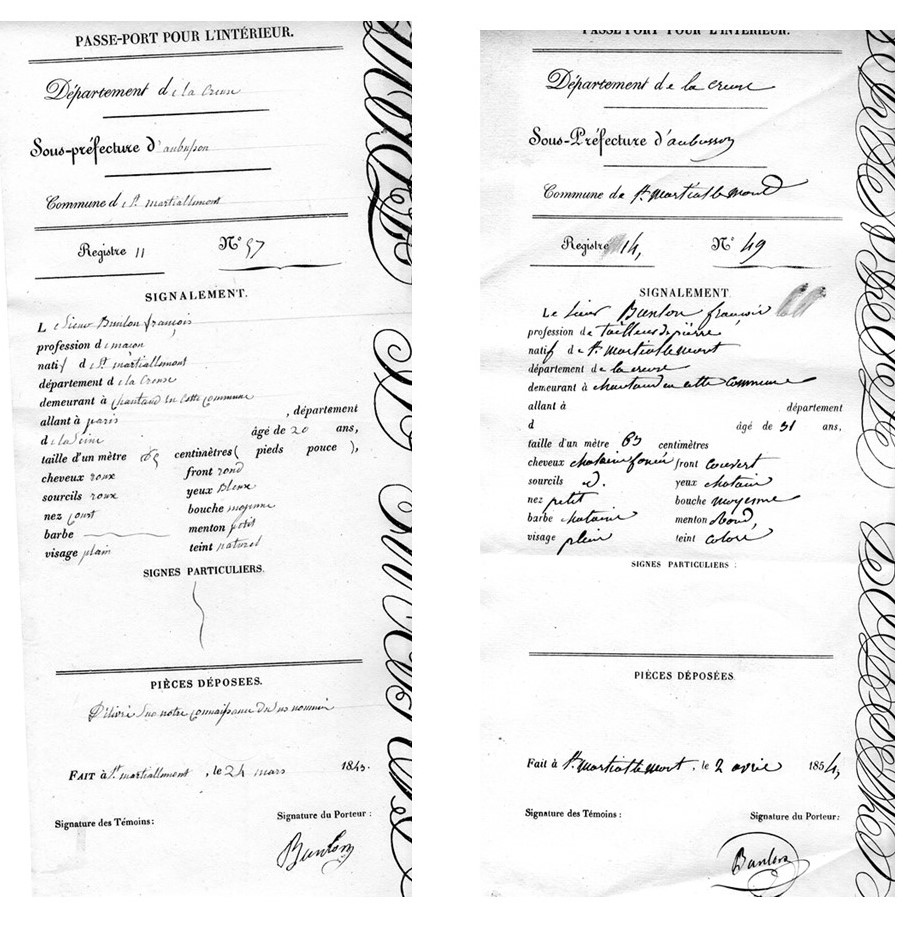 PASSE-PORT POUR L'INTÉRIEUR.
Département de la Creuse
Sous-préfecture d'aubusson
Commune de St martiallemont
Registre 11 N° 57
SIGNALEMENT.
Le Sieur Banlon françois
profession de maçon
natif de St martiallemont
département de la Creuse
demeurant à chautaud en cette commune
allant à paris , département
de la Seine âgé de 20 ans,
taille d'un mètre 65 centimètres ( pieds pouce ),
cheveux roux front rond
sourcils roux yeux Bleux
nez court bouche moyenne
barbe menton petit
visage plain teint naturel
SIGNES PARTICULIERS.
PIÈCES DÉPOSEES.
Délivré Sur notre connaissance du
FAIT à St martiallemont , le 24 mars 1843.
Signature des Témoins: Signature du Porteur:
Banlon
PASSE-PORT POUR L'INTÉRIEUR.
Département de la creuse
Sous-Préfecture d'aubusson
Commune de St martiat le mont
Registre 14, N° 49
SIGNALEMENT.
Le Sieur Banlon françois
profession de tailleur de pierre
natif de St martiat le mont
département de la creuse
demeurant à chautaud en cette commune
allant à département
d âgé de 31 ans,
taille d'un mètre 63 centimètres
cheveux chatain foncé front couvert
sourcils d. yeux chatain
nez petit bouche moyenne
barbe chataine menton Rond,
visage plein teint coloré
SIGNES PARTICULIERS :
PIÈCES DÉPOSÉES
Fait à St martiat le mont , le 2 avril 1854,
Signature des Témoins: Signature du Porteur:
Banlon